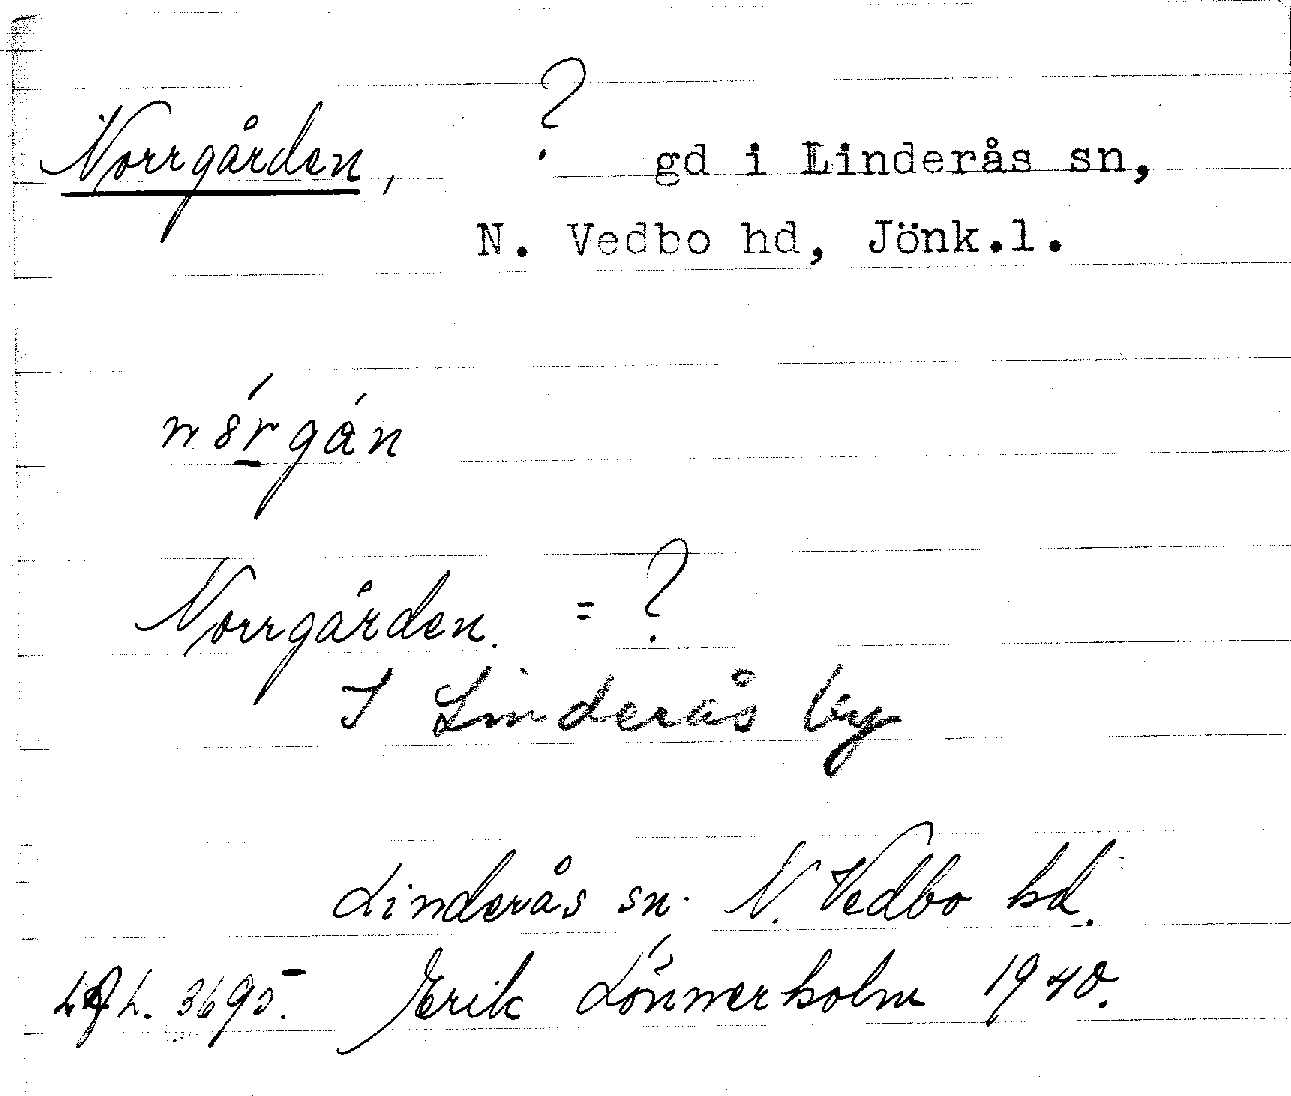 Norrgården, ? gd i Linderås sn,
N. Vedbo hd, Jönk.l.
Norrgården. = ?
I Linderås by
Linderås sn. N. Vedbo hd.
3695. Erik Lönnerholm 1940.